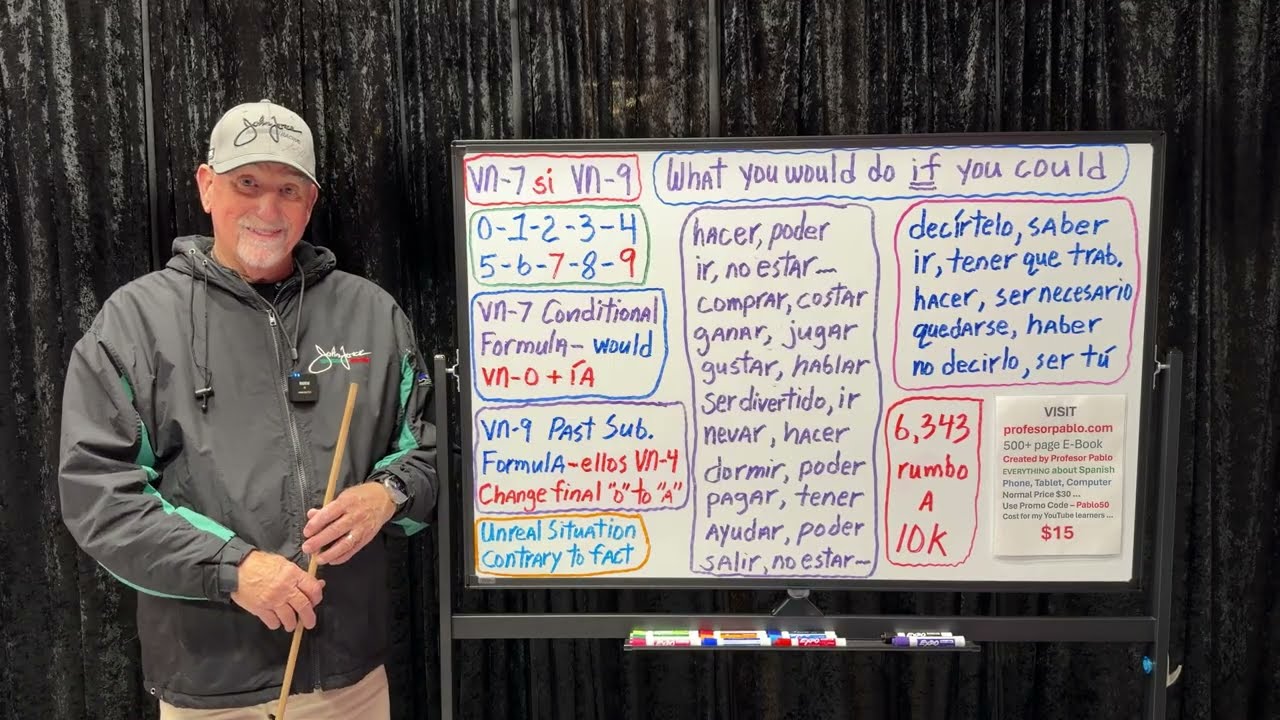 John Force
John Force
VN-7 si VN-9
What you would do if you could
0-1-2-3-4
5-6-7-8-9
VN-7 Conditional
Formula- would
VN-0 + ÍA
VN-9 Past Sub.
Formula-ellos VN-4
Change final "O" to "A"
Unreal Situation
Contrary to fact
hacer, poder
ir, no estar~
comprar, costar
ganar, jugar
gustar, hablar
Ser divertido, ir
nevar, hacer
dormir, poder
pagar, tener
Ayudar, poder
salir, no estar~
decírtelo, saber
ir, tener que trab.
hacer, ser necesario
quedarse, haber
no decirlo, ser tú
6,343
rumbo
A
10K
VISIT
profesorpablo.com
500+ page E-Book
Created by Profesor Pablo
EVERYTHING about Spanish
Phone, Tablet, Computer
Normal Price $30 ...
Use Promo Code – Pablo50
Cost for my YouTube learners ...
$15
EXPO